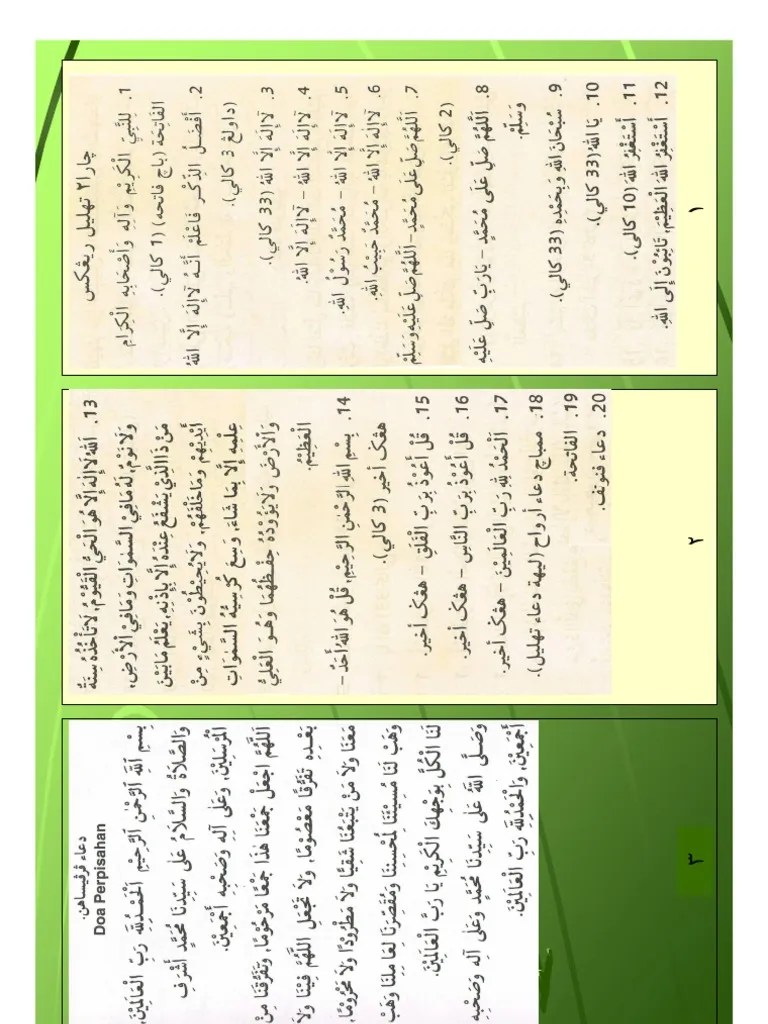 چارا٢ تهليل ريڠكس
1. لِلنَّبِيِّ الْكَرِيْمِ وَآلِهِ وَأَصْحَابِهِ الْكِرَامِ
الفَاتِحَة (باج فاتحه) (1 كالي).
2. أَفْضَلُ الذِّكْرِ فَاعْلَمْ أَنَّهُ لَاإِلَهَ إِلَّا اللهُ
(داولڠ 3 كالي).
3. لَاإِلَهَ إِلَّا اللهُ (33 كالي).
4. لَاإِلَهَ إِلَّا اللهُ – لَاإِلَهَ إِلَّا اللهُ.
5. لَاإِلَهَ إِلَّا اللهُ – مُحَمَّدٌ رَسُوْلُ اللهِ.
6. لَاإِلَهَ إِلَّا اللهُ – مُحَمَّدٌ حَبِيْبُ اللهِ.
7. اَللَّهُمَّ صَلِّ عَلَى مُحَمَّدٍ – اَللَّهُمَّ صَلِّ عَلَيْهِ وَسَلِّمْ
(2 كالي).
8. اَللَّهُمَّ صَلِّ عَلَى مُحَمَّدٍ – يَارَبِّ صَلِّ عَلَيْهِ
وَسَلِّمْ.
9. سُبْحَانَ اللهِ وَبِحَمْدِهِ (33 كالي).
10. يَا اللهُ (33 كالي).
11. أَسْتَغْفِرُ اللهَ (10 كالي).
12. أَسْتَغْفِرُ اللهَ الْعَظِيْمَ، تَائِبُوْنَ إِلَى اللهِ.
١
13. اَللهُ لَاإِلَهَ إِلَّا هُوَ الْحَيُّ الْقَيُّوْمُ، لَاتَأْخُذُهُ سِنَةٌ
وَلَانَوْمٌ، لَهُ مَافِيْ السَّمٰوَاتِ وَمَافِيْ الْأَرْضِ،
مَنْ ذَا الَّذِيْ يَشْفَعُ عِنْدَهُ إِلَّا بِإِذْنِهِ، يَعْلَمُ مَابَيْنَ
أَيْدِيْهِمْ وَمَاخَلْفَهُمْ، وَلَايُحِيْطُوْنَ بِشَيْءٍ مِنْ
عِلْمِهِ إِلَّا بِمَا شَاءَ، وَسِعَ كُرْسِيُّهُ السَّمٰوَاتِ
وَالْأَرْضَ وَلَايَؤُوْدُهُ حِفْظُهُمَا وَهُوَ الْعَلِيُّ
الْعَظِيْمُ.
14. بِسْمِ اللهِ الرَّحْمٰنِ الرَّحِيْمِ، قُلْ هُوَ اللهُ أَحَدٌ –
هڠݢ أخير (3 كالي).
15. قُلْ أَعُوْذُ بِرَبِّ الْفَلَقِ – هڠݢ أخير.
16. قُلْ أَعُوْذُ بِرَبِّ النَّاسِ – هڠݢ أخير.
17. اَلْحَمْدُ لِلهِ رَبِّ الْعَالَمِيْنَ – هڠݢ أخير.
18. ممباچ دعاء أرواح (ليهة دعاء تهليل).
19. الفاتحة.
20. دعاء فنوتف.
٢
دعاء ڤرڤيساهن.
Doa Perpisahan
بِسْمِ اللَّهِ الرَّحْمٰنِ الرَّحِيْمِ اَلْحَمْدُ لِلَّهِ رَبِّ الْعَالَمِيْنَ،
وَالصَّلَاةُ وَالسَّلَامُ عَلَى سَيِّدِنَا مُحَمَّدٍ أَشْرَفِ
الْمُرْسَلِيْنَ، وَعَلَى آلِهِ وَصَحْبِهِ أَجْمَعِيْنَ.
اَللَّهُمَّ اجْعَلْ جَمْعَنَا هَذَا جَمْعًا مَرْحُوْمًا، وَتَفَرُّقَنَا مِنْ
بَعْدِهِ تَفَرُّقًا مَعْصُوْمًا، وَلَا تَجْعَلِ اللَّهُمَّ فِيْنَا وَلَا
مَعَنَا وَلَا مَنْ يَتْبَعُنَا شَقِيًّا وَلَا مَطْرُوْدًا وَلَا مَحْرُوْمًا،
وَهَبْ لَنَا مُسِيْئَنَا لِمُحْسِنِنَا وَمُقَصِّرَنَا لِعَامِلِنَا وَهَبْ
لَنَا الْكُلَّ بِوَجْهِكَ الْكَرِيْمِ يَا رَبَّ الْعَالَمِيْنَ.
وَصَلَّى اللهُ عَلَى سَيِّدِنَا مُحَمَّدٍ وَعَلَى آلِهِ وَصَحْبِهِ
أَجْمَعِيْنَ، وَالْحَمْدُ لِلَّهِ رَبِّ الْعَالَمِيْنَ.
٣